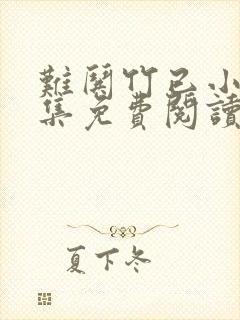 難鬨竹已小
集免費閱讀
夏下冬